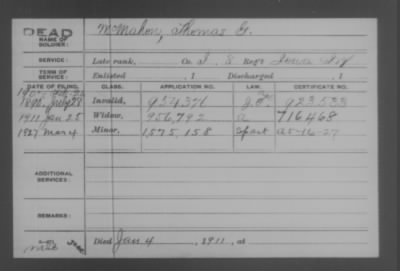 DEAD
NAME OF SOLDIER: McMahon, Thomas G.
SERVICE: Late rank, Co. I, 8 Reg't Iowa Inf
TERM OF SERVICE: Enlisted , 1 Discharged , 1
DATE OF FILING. CLASS. APPLICATION NO. LAW. CERTIFICATE NO.
July 28 Invalid, 954,376 923,533
1911 Jan 25 Widow, 956,792 a 716468
1927 Mar 4 Minor, 1,575,158 a 5-16-27
ADDITIONAL SERVICES:
REMARKS:
Died Jan 4, 1911, at